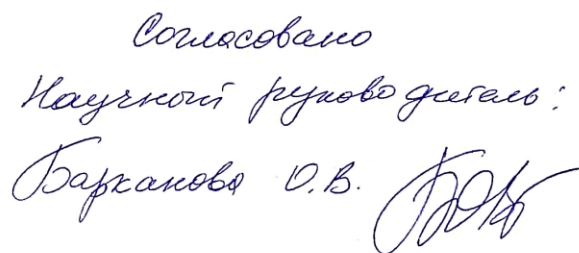 Согласовано
Научный руководитель:
Барканова О.В.